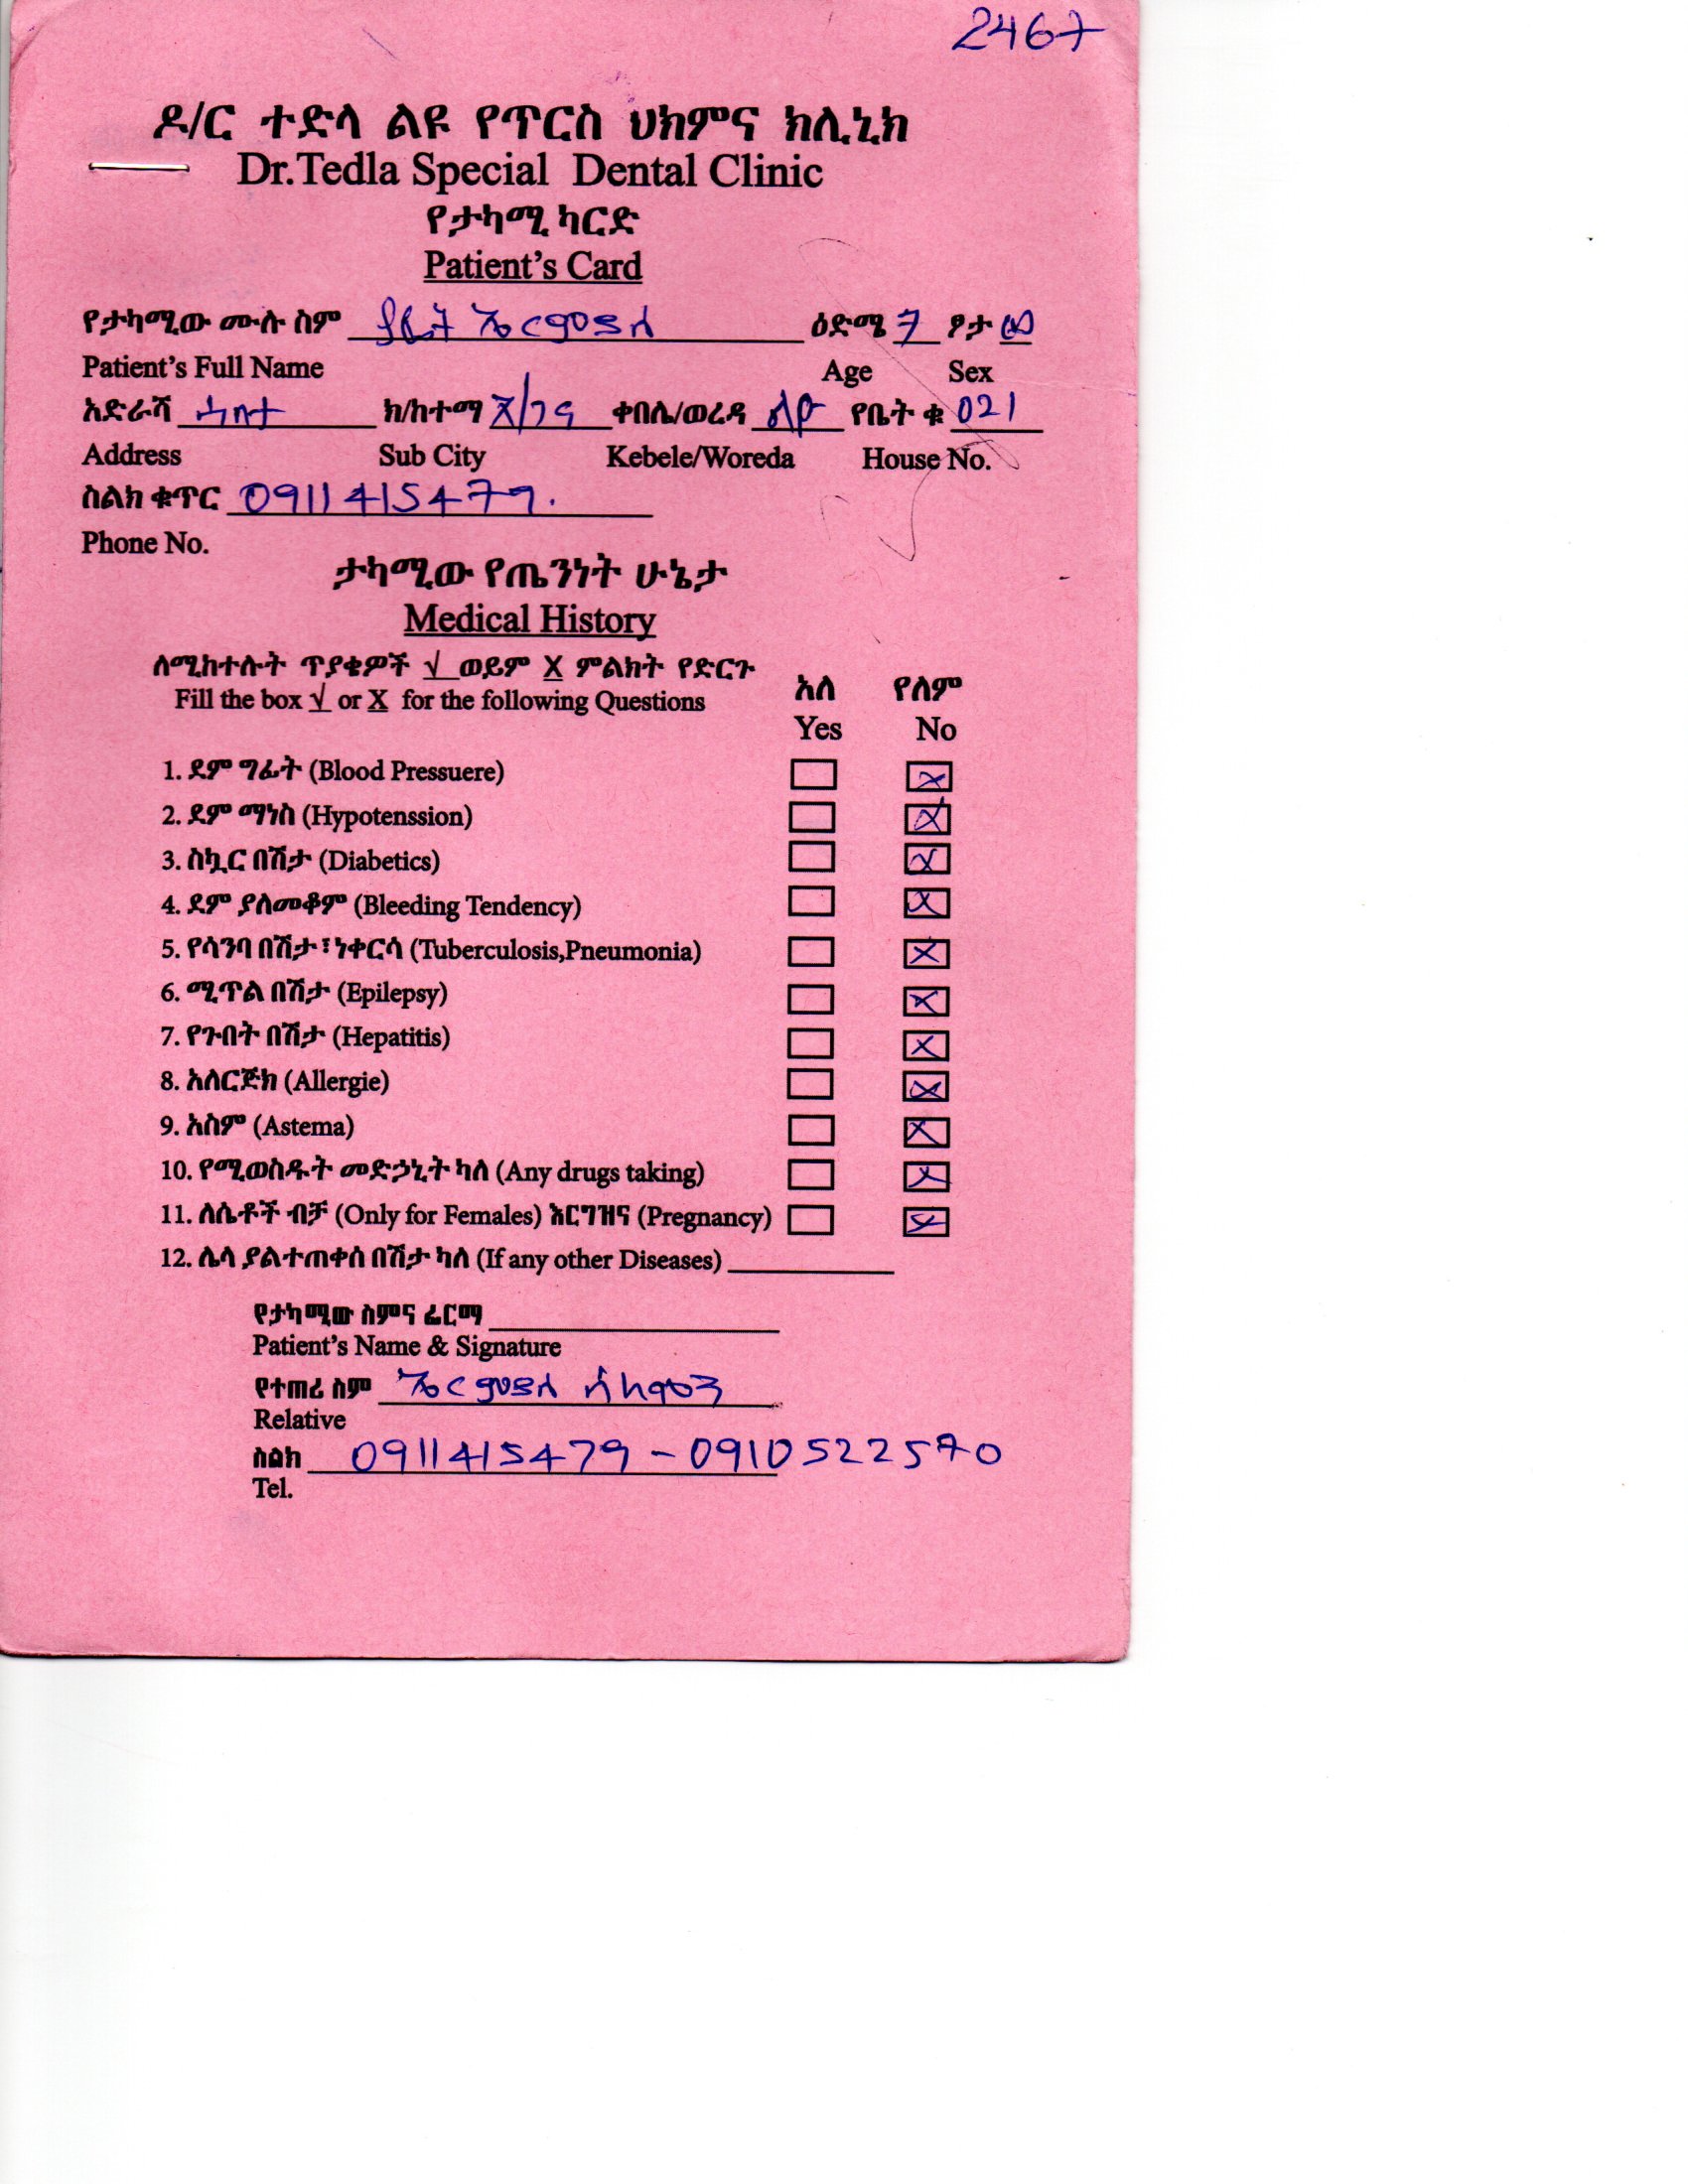 2467
ዶ/ር ተድላ ልዩ የጥርስ ህክምና ክሊኒክ
Dr.Tedla Special Dental Clinic
የታካሚ ካርድ
Patient's Card
የታካሚው ሙሉ ስም ዕድሜ 7 ፆታ ወ
Patient's Full Name Age Sex
አድራሻ ክ/ከተማ ቀበሌ/ወረዳ ልዩ የቤት ቁ 021
Address Sub City Kebele/Woreda House No.
ስልክ ቁጥር 0911415479.
Phone No.
ታካሚው የጤንነት ሁኔታ
Medical History
ለሚከተሉት ጥያቄዎች √ ወይም X ምልክት የድርጉ
Fill the box √ or X for the following Questions
አለ የለም
Yes No
1. ደም ግፊት (Blood Pressuere)
2. ደም ማነስ (Hypotenssion)
3. ስኳር በሽታ (Diabetics)
4. ደም ያለመቆም (Bleeding Tendency)
5. የሳንባ በሽታ፣ ነቀርሳ (Tuberculosis,Pneumonia)
6. ሚጥል በሽታ (Epilepsy)
7. የጉበት በሽታ (Hepatitis)
8. አለርጅክ (Allergie)
9. አስም (Astema)
10. የሚወስዱት መድኃኒት ካለ (Any drugs taking)
11. ለሴቶች ብቻ (Only for Females) እርግዝና (Pregnancy)
12. ሌላ ያልተጠቀሰ በሽታ ካለ (If any other Diseases)
የታካሚው ስምና ፊርማ
Patient's Name & Signature
የተጠሪ ስም
Relative
ስልክ 0911415479 - 0910522570
Tel.